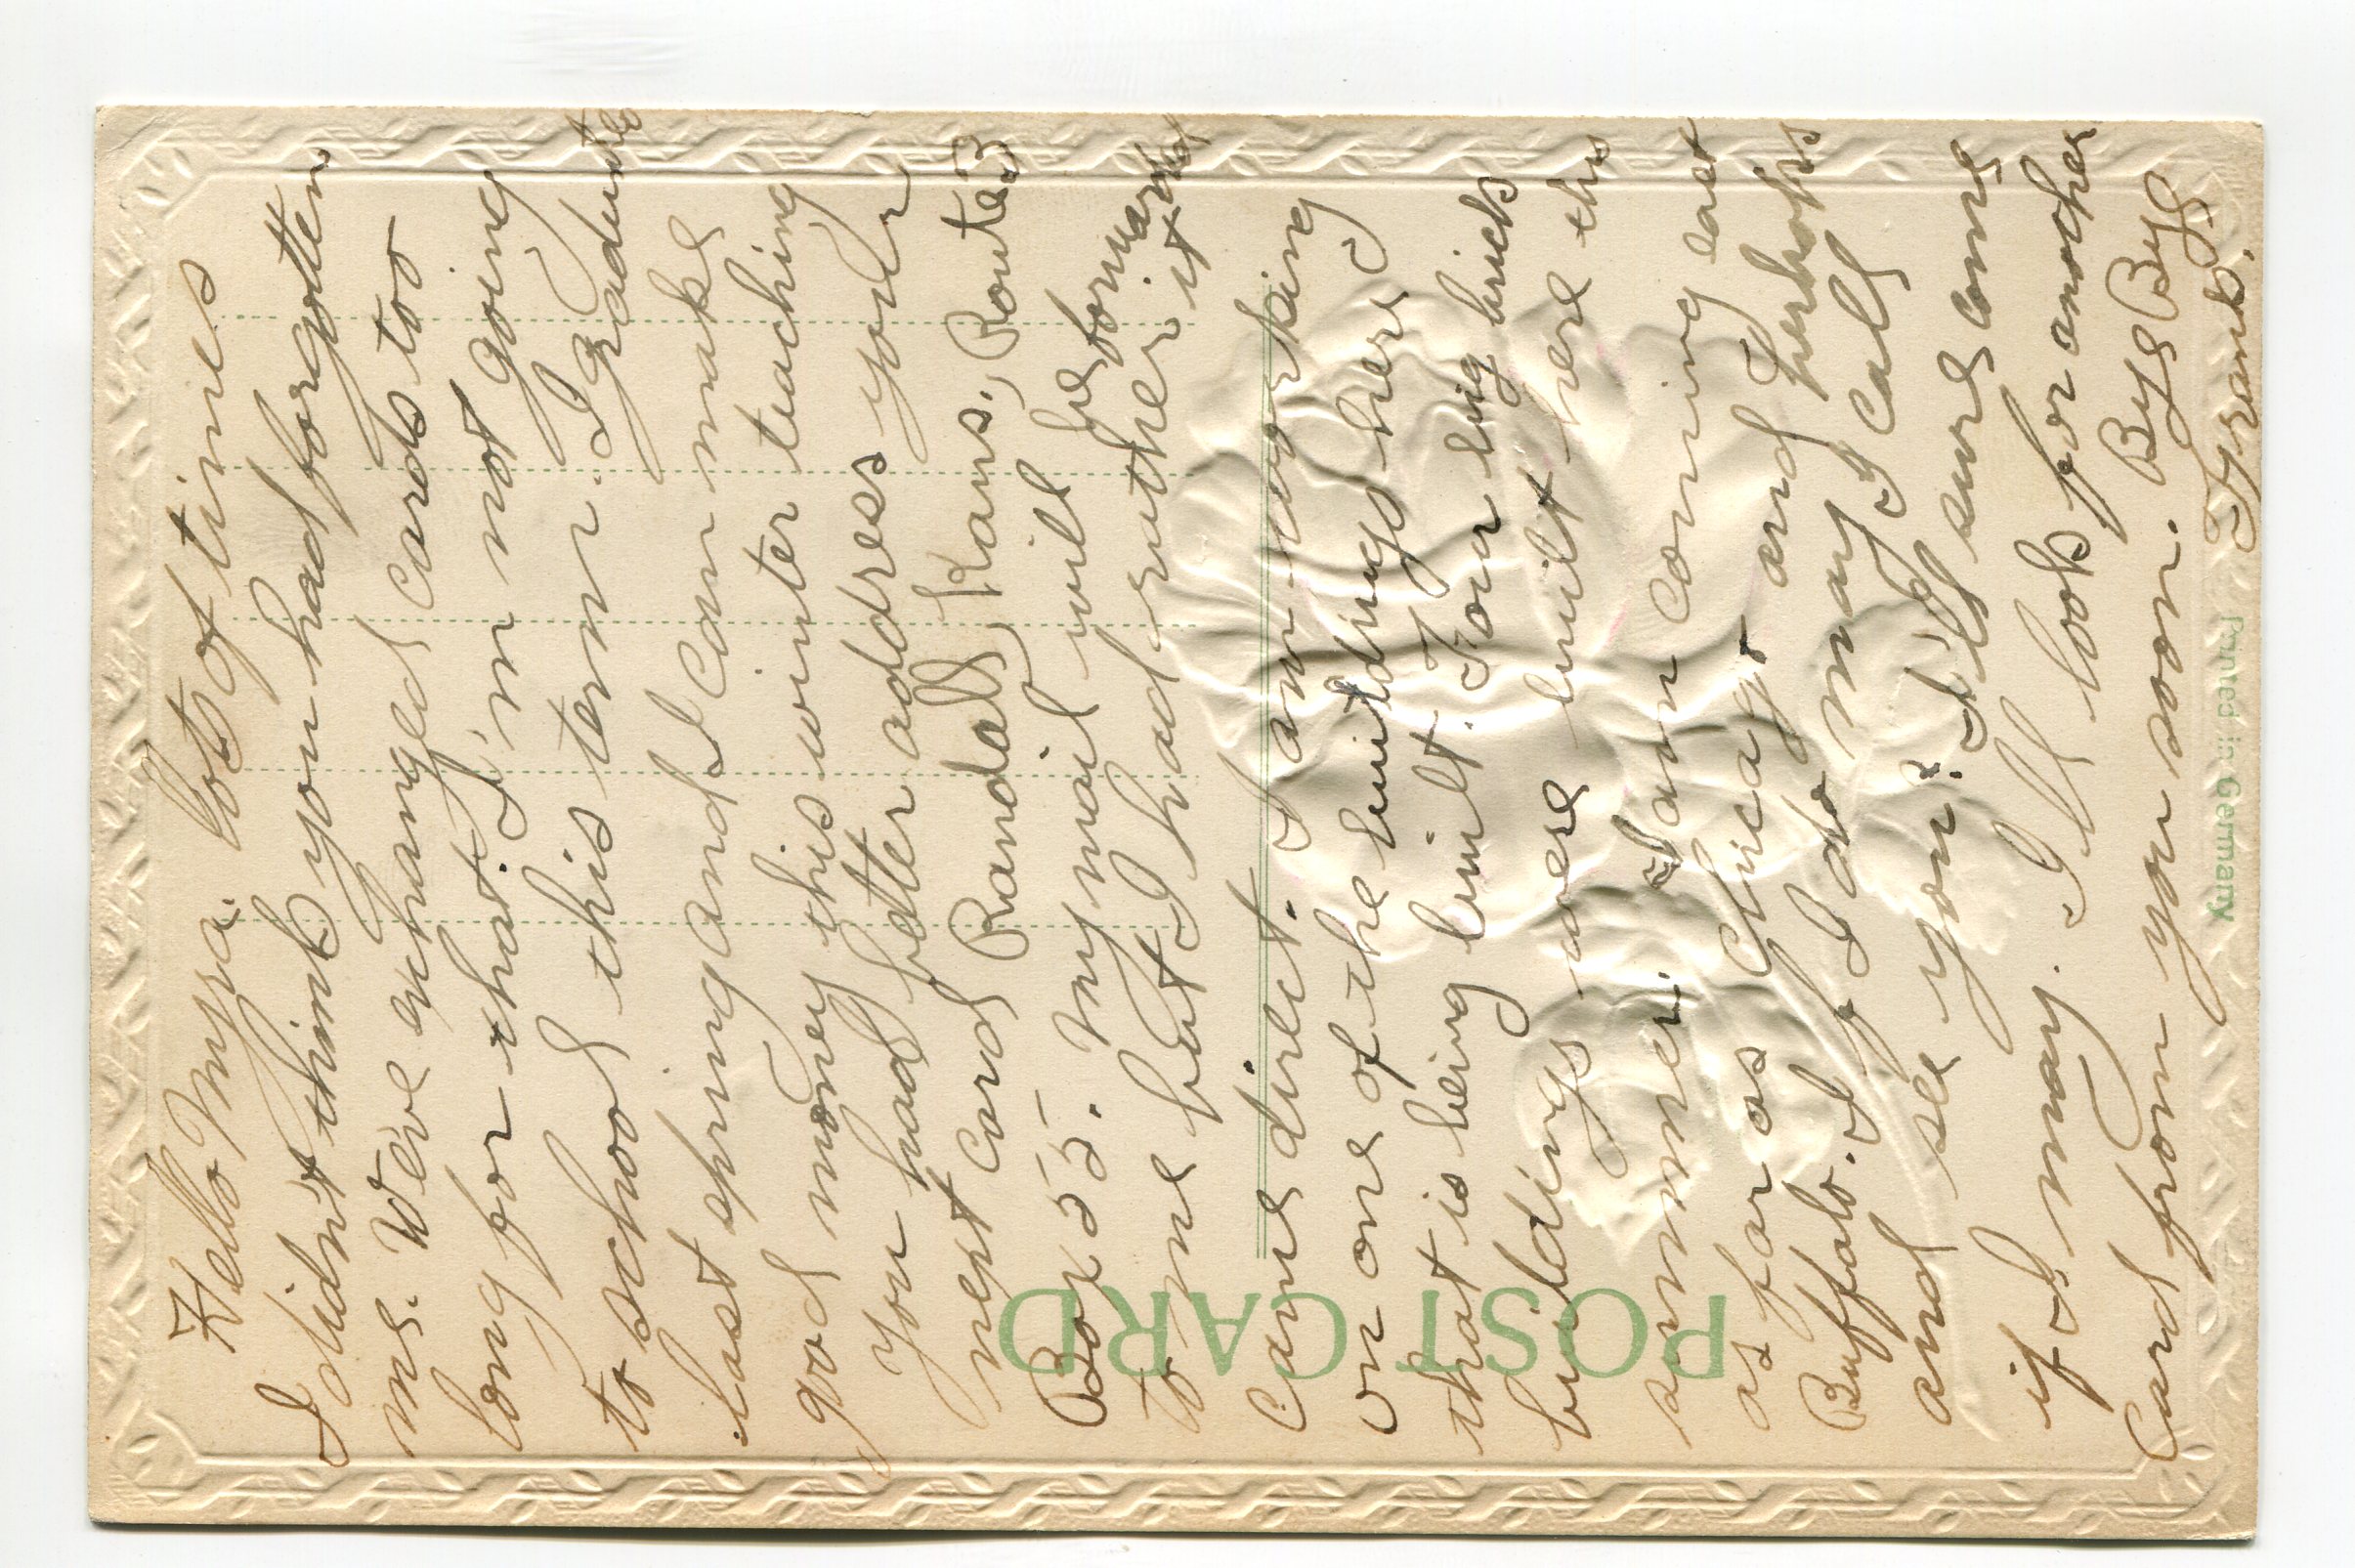 Hello Myra. Lots of times
I didn't think you had forgotten
me. We've exchanged cards too
long for that. I'm not going
to school this term. I graduated
last spring and I can make
good money this winter teaching
You had better address your
next card Randall, Kans., Route 3
Box 55. My mail will be forwarded
to me but I had rather it
came direct. I am working
on one of the buildings here
that is being built. Four big brick
buildings were built here this
summer. I am coming east
as far as Chicago and perhaps
Buffalo. If I do may I call
and see you? I'll sure come
if I may. I'll look for another
Card from you soon. Bye Bye
Frank.
POST CARD
Printed in Germany